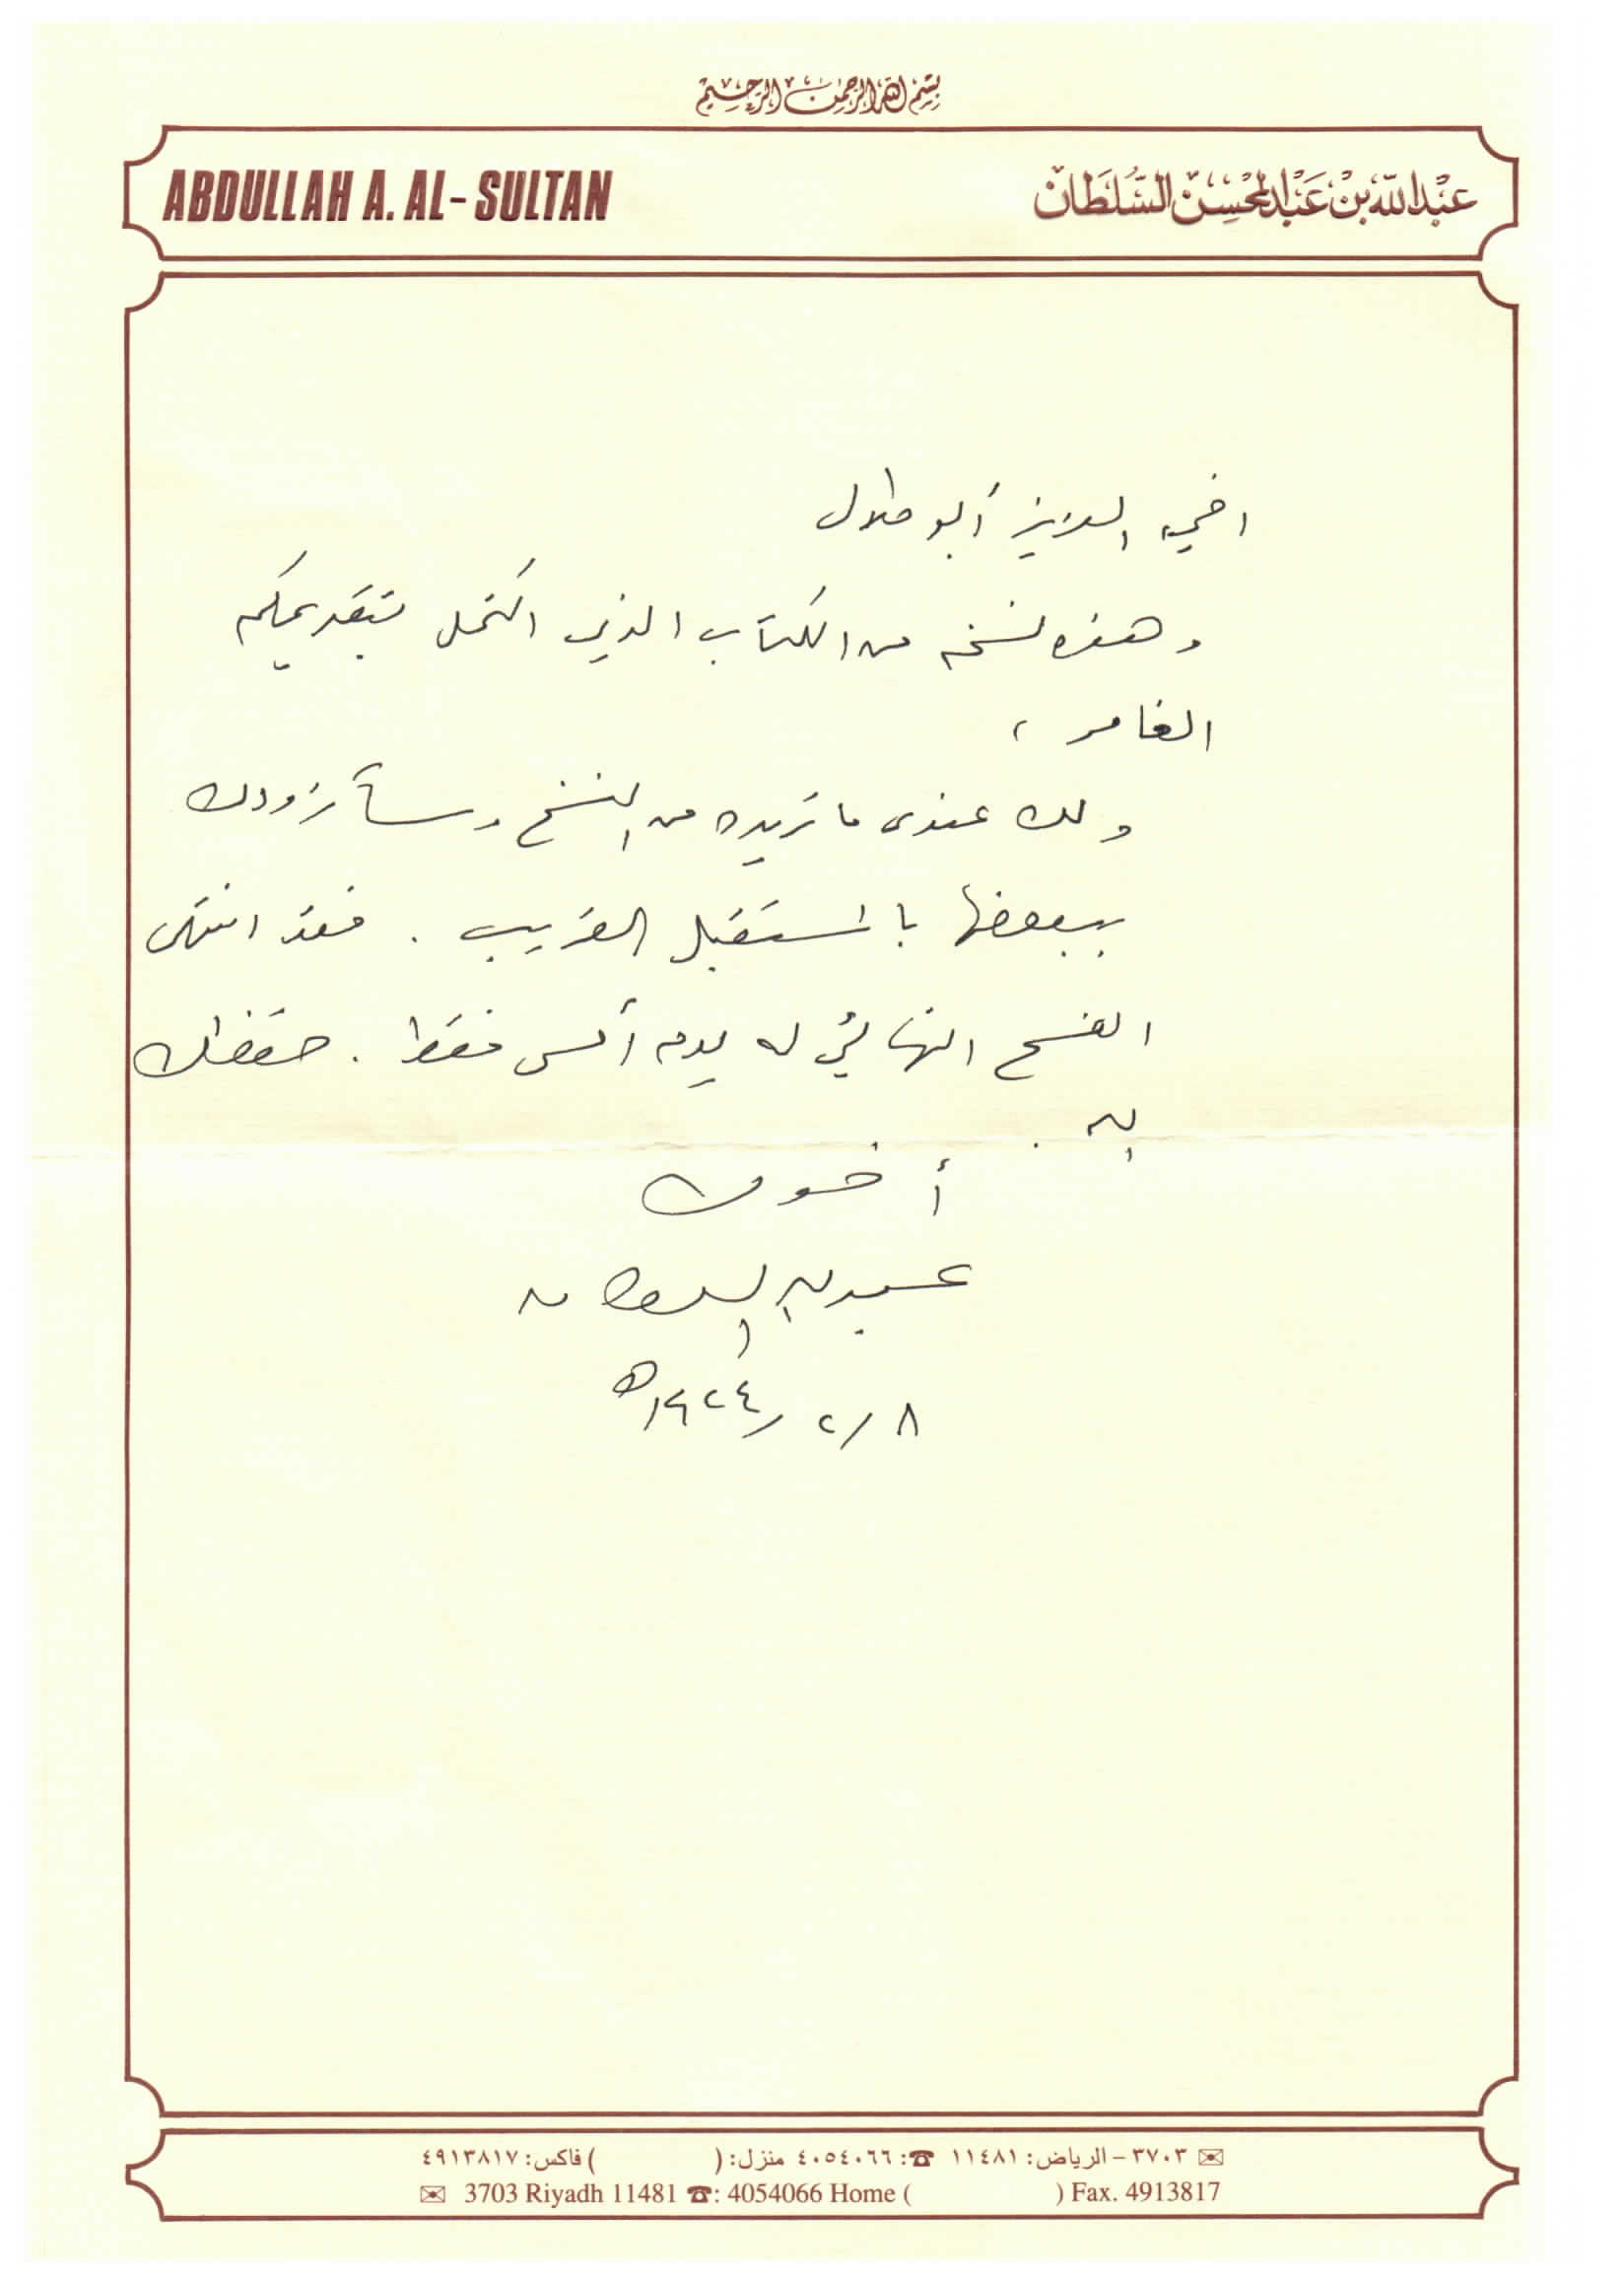 بسم الله الرحمن الرحيم
ABDULLAH A. AL-SULTAN
عَبْدالله بنْ عَبْدالمحْسِنْ السُّلطَانْ
اخي العزيز أبو طلال
وهذه نسخه من الكتاب الذي اكتمل بتقديمكم
الغامر ،
ولك عندى ما تريده من النسخ وسأزودك
ببعضها بالمستقبل القريب . فقد انتهى
الفسح النهائي له يوم أمس فقط . حفظك
الله .
أخوك
عبدالله السلطان
٨ / ٢ / ١٤٢٤ھ
✉ ٣٧٠٣ – الرياض: ١١٤٨١ ☎: ٤٠٥٤٠٦٦ منزل: ( ) فاكس: ٤٩١٣٨١٧
✉ 3703 Riyadh 11481 ☎: 4054066 Home ( ) Fax. 4913817